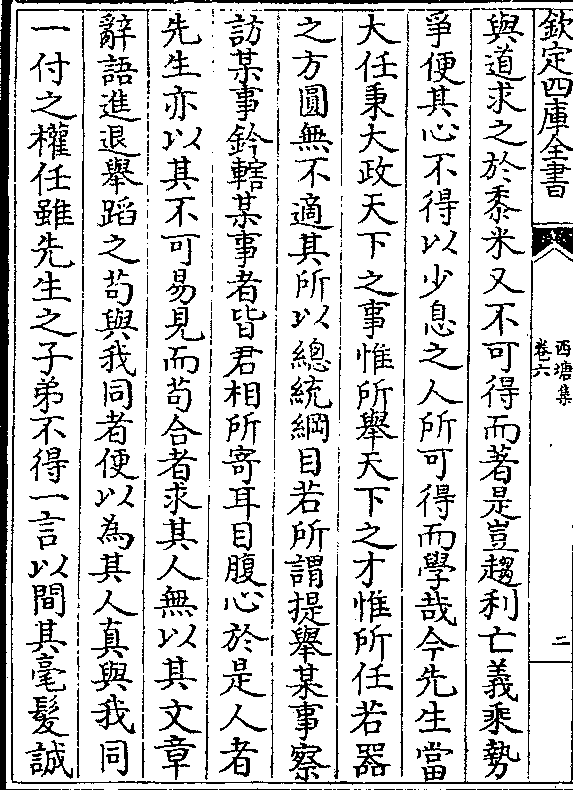 欽定四庫全書
西塘集
卷六
二
與道求之於黍米又不可得而著是豈趨利亡義乘勢
爭便其心不得以少息之人所可得而學哉今先生當
大任秉大政天下之事惟所舉天下之才惟所任若器
之方圓無不適其所以總統綱目若所謂提舉某事察
訪某事鈐轄某事者皆君相所寄耳目腹心於是人者
先生亦以其不可易見而茍合者求其人無以其文章
辭語進退舉蹈之茍與我同者便以為其人真與我同
一付之權任雖先生之子弟不得一言以間其毫髮誠